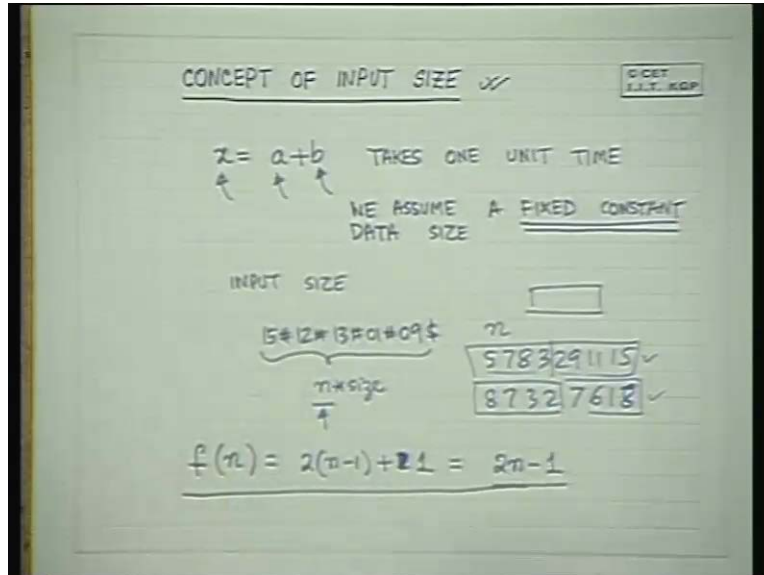 CONCEPT OF INPUT SIZE
© CET
I.I.T. KGP
x = a+b TAKES ONE UNIT TIME
WE ASSUME A FIXED CONSTANT
DATA SIZE
INPUT SIZE
15#12#13#01#09$
n
5783291115
n*size
87327618
f(n) = 2(n-1)+1 = 2n-1